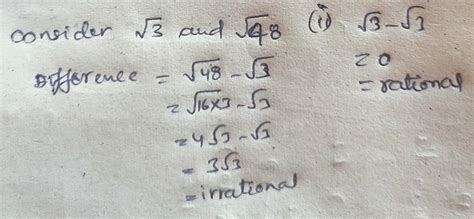 consider √3 and √48
Difference = √48 - √3
= √16×3 - √3
= 4√3 - √3
= 3√3
= irrational
(i) √3 - √3
= 0
= rational